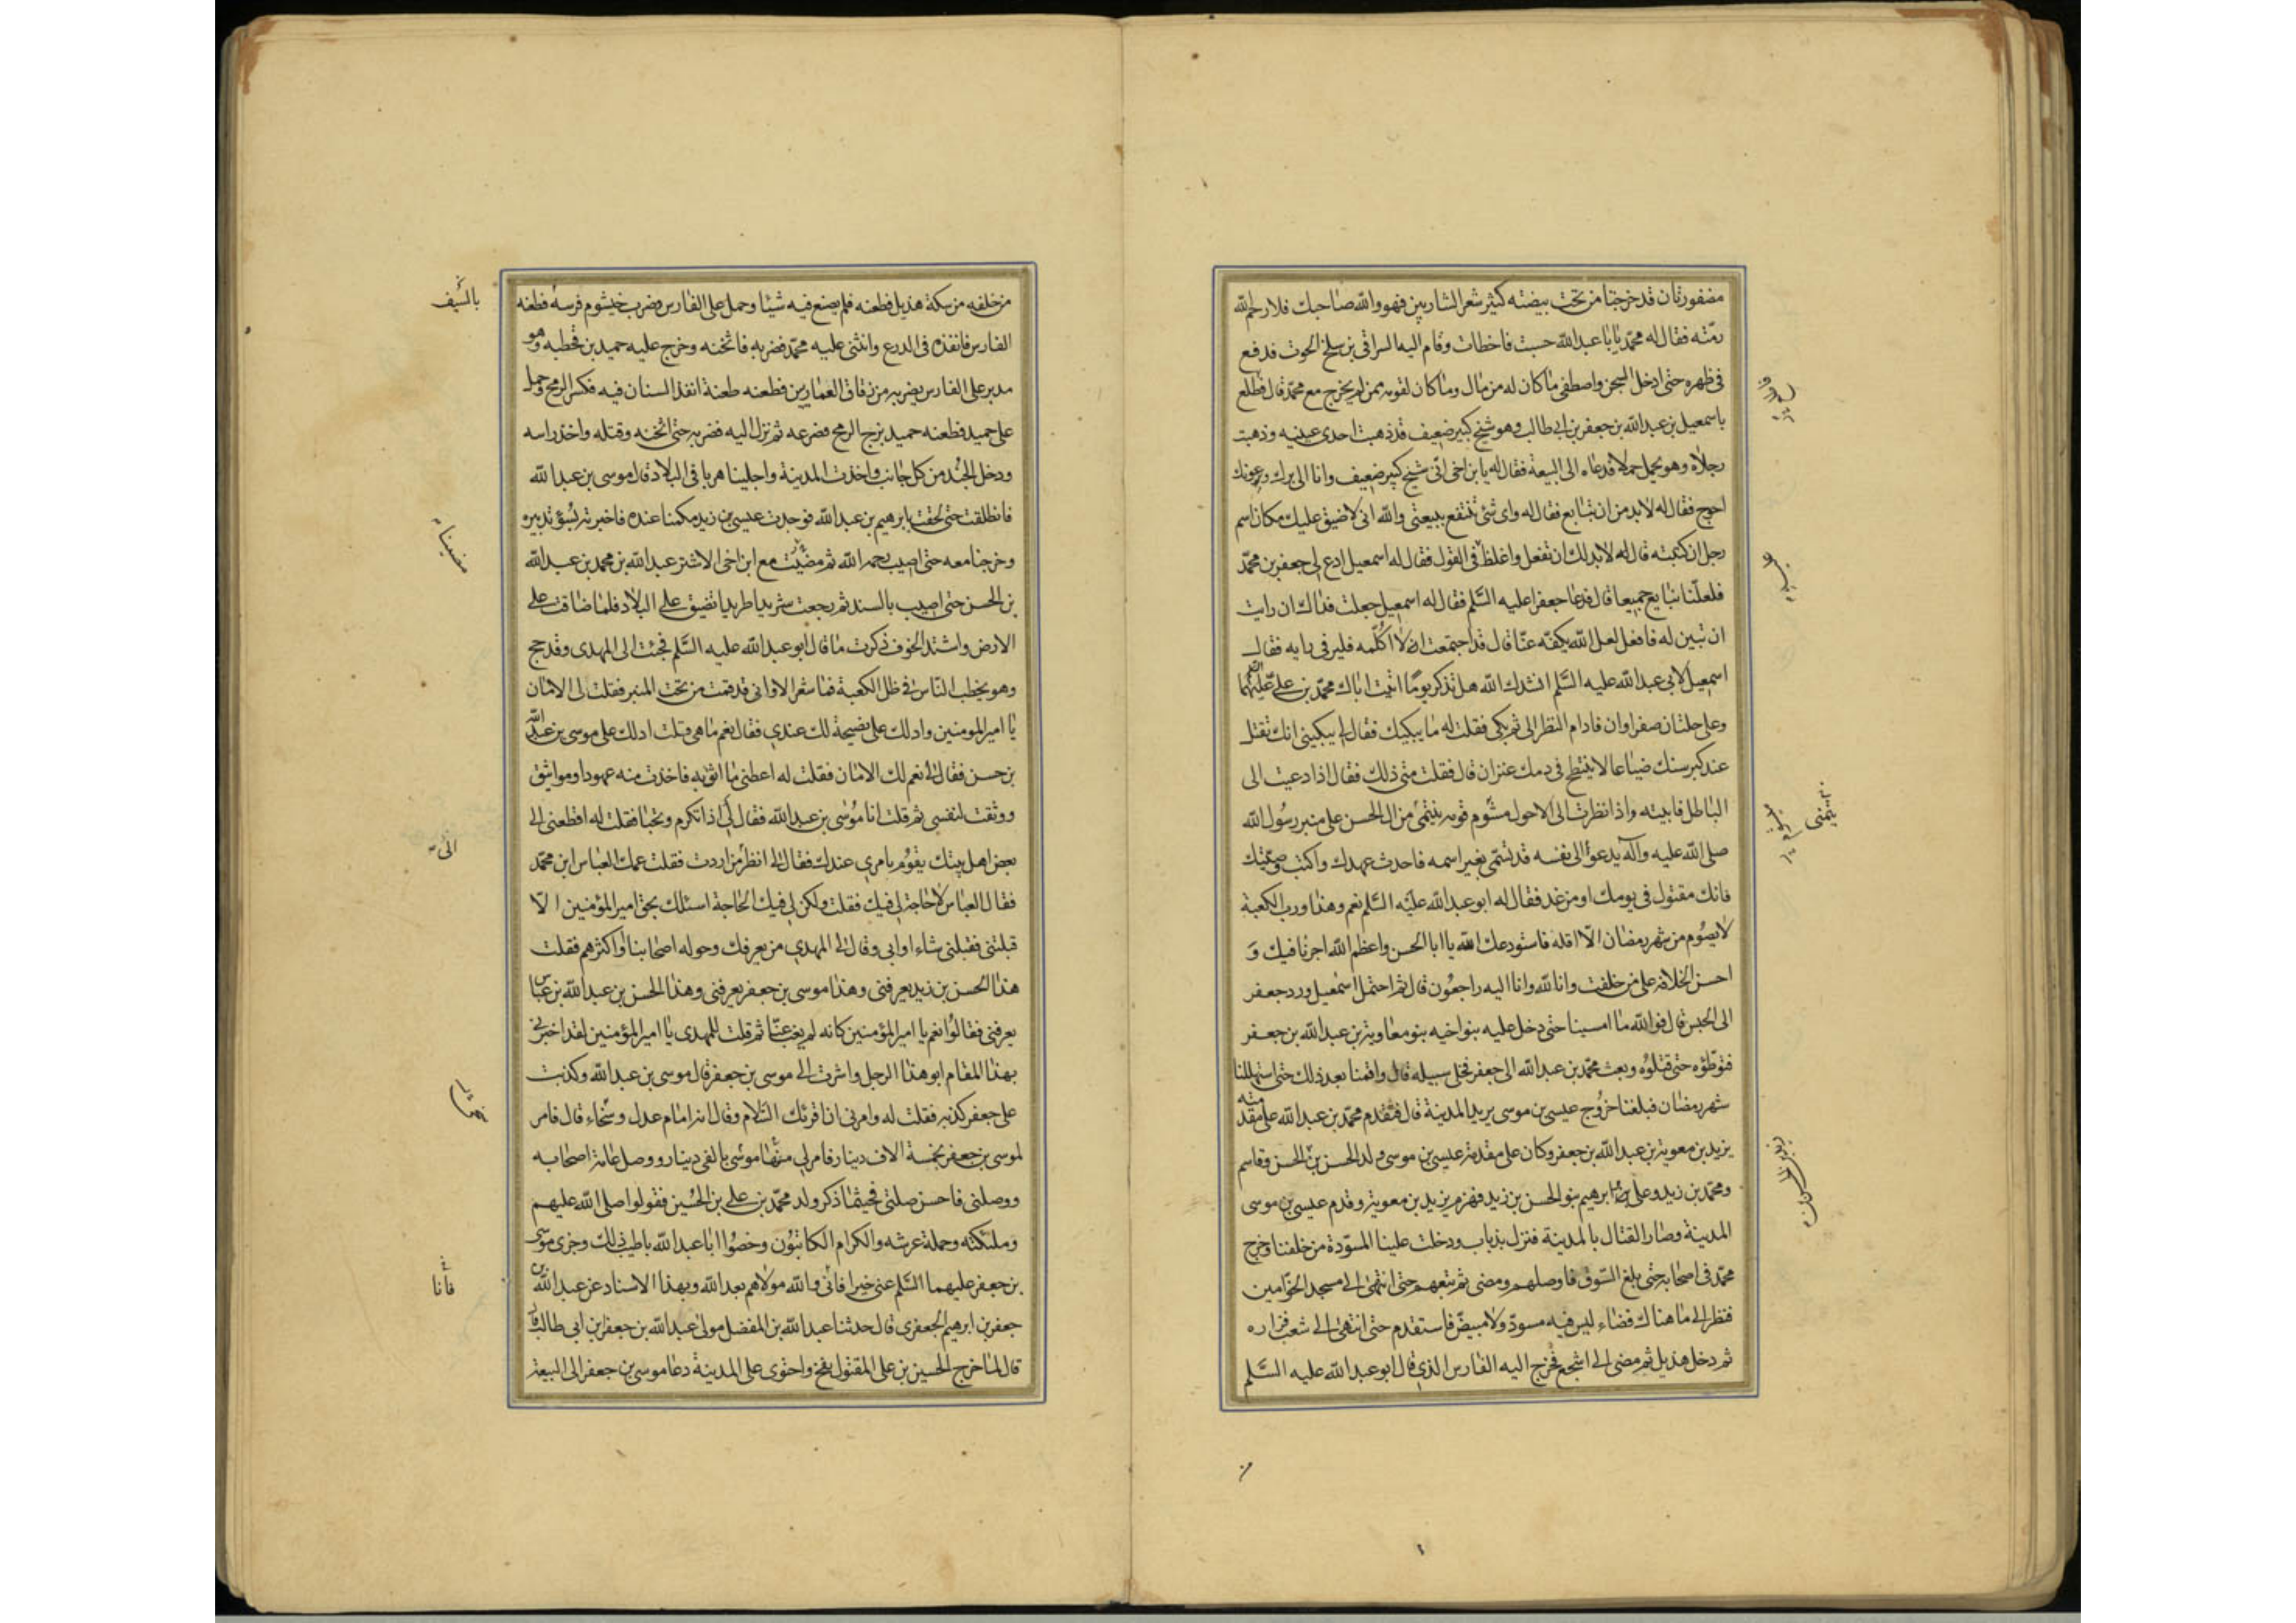 مضفورتان قد خرجتا من تحت بيضته كثير شعر الشاربين فهو والله صاحبك فلا رحم الله
رمّته فقال له محمّد يا با عبد الله حسبت فاخطات وقام اليه السراقى بن سلخ الحوت فدفع
فى ظهره حتى ادخل السجن واصطفى ما كان له من مال وما كان لقومه ممن لم يخرج مع محمّد قال فطلع
باسمعيل بن عبد الله بن جعفر بن ابى طالب وهو شيخ كبير ضعيف قد ذهبت احدى عينيه وذهبت
رجلاه وهو يحمل حملا فدعاه الى البيعة فقال له يا بن اخى انّى شيخ كبير ضعيف وانا الى برك وعونك
احوج فقال له لا بد من ان تبايع فقال له واى شئ تنتفع ببيعتى والله انى لاضيق عليك مكان اسم
رجل ان كتبته قال له لا بد لك ان تفعل واغلظ فى القول فقال له اسمعيل ادع لى جعفر بن محمّد
فلعلّنا نبايع جميعا قال فدعا جعفرا عليه السّلم فقال له اسمعيل جعلت فداك ان رايت
ان تبين له فافعل لعل الله يكفّه عنّا قال قد اجتمعت ان لا اكلّمه فلير فى رايه فقال
اسمعيل لابى عبد الله عليه السّلم انشدك الله هل تذكر يومًا اتيت اباك محمّد بن على عليهما السّلم
وعلى حلتان صفراوان فادام النظر الى ثم بكى فقلت له ما يبكيك فقال لى يبكينى انك تقتل
عند كبر سنك ضياعا لا ينتطح فى دمك عنزان قال فقلت متى ذلك فقال اذا دعيت الى
الباطل فابيته واذا نظرت الى الاحول مشوم قومه ينتمى من ال الحسن على منبر رسول الله
صلى الله عليه وآله يدعو الى نفسه قد تسمّى بغير اسمه فاحدث عهدك واكتب وصيّتك
فانك مقتول فى يومك او من غد فقال له ابو عبد الله عليه السّلم نعم وهذا ورب الكعبة
لا يصوم من شهر رمضان الّا اقله فاستودعك الله يا ابا الحسن واعظم الله اجرنا فيك وَ
احسن الخلافة على من خلفت وانا لله وانا اليه راجعون قال ثم احتمل اسمعيل ورد جعفر
الى الحبس قال فو الله ما امسينا حتى دخل عليه بنو اخيه بنو معاوية بن عبد الله بن جعفر
فتوطّؤه حتى قتلوه وبعث محمّد بن عبد الله الى جعفر فخلى سبيله قال واقمنا بعد ذلك حتى استهللنا
شهر رمضان فبلغنا خروج عيسى بن موسى يريد المدينة قال فتقدم محمّد بن عبد الله على مقدمته
يزيد بن معوية بن عبد الله بن جعفر وكان على مقدمة عيسى بن موسى ولد الحسن بن الحسن وقاسم
ومحمّد بن زيد وعلى وابرهيم بنو الحسن بن زيد فهزم يزيد بن معوية وقدم عيسى بن موسى
المدينة وصار القتال بالمدينة فنزل بذباب ودخلت علينا المسوّدة من خلفنا وخرج
محمّد فى اصحابه حتى بلغ السّوق فاوصلهم ومضى ثم تبعهم حتى انتهى الى مسجد الخوّامين
فنظر الى ما هناك فضاء ليس فيه مسودّ ولا مبيضّ فاستقدم حتى انتهى الى شعب فزاره
ثم دخل هذيل ثم مضى الى اشجع فخرج اليه الفارس الذى قال ابو عبد الله عليه السَّلم
يتمنى
من خلفه من سكة هذيل فطعنه فلم يصنع فيه شيئا وحمل على الفارس فضرب خيشوم فرسه فطعنه
بالسّيف
الفارس فانفذه فى الدرع وانثنى عليه محمّد فضربه فاثخنه وخرج عليه حميد بن قحطبه وهو
مدبر على الفارس يضربه من زقاق العمّارين فطعنه طعنة انفذ السنان فيه فكسر الرمح وحمل
على حميد فطعنه حميد بزج الرمح فصرعه ثم نزل اليه فضربه حتى اثخنه وقتله واخذ راسه
ودخل الجند من كل جانب واخذت المدينة واجلينا هربا فى البلاد قال موسى بن عبد الله
فانطلقت حتى لحقت بابرهيم بن عبد الله فوجدت عيسى بن زيد مكمنا عنده فاخبرته بسوء تدبيره
وخرجنا معه حتى اصيب رحمه الله ثم مضيت مع ابن اخى الاشتر عبد الله بن محمد بن عبد الله
بن الحسن حتى اصيب بالسند ثم رجعت شريدا طريدا تضيق على البلاد فلما ضاقت على
الارض واشتد الخوف ذكرت ما قال ابو عبد الله عليه السَّلم فجئت الى المهدى وقد حج
وهو يخطب الناس فى ظل الكعبة فما شعر الا وانى قد قمت من تحت المنبر فقلت لى الامان
يا امير المومنين وادلك على نصيحة لك عندى فقال نعم ما هى قلت ادلك على موسى بن عبد الله
بن حسن فقال لى نعم لك الامان فقلت له اعطنى ما اثق به فاخذت منه عهودا ومواثيق
ووثقت لنفسى ثم قلت انا موسى بن عبد الله فقال لى اذا تكرم وتحبا فقلت له اقطعنى الى
الىٰ
بعض اهل بيتك يقوم بامرى عندك فقال لى انظر من اردت فقلت عمك العباس ابن محمّد
فقال العباس لا حاجة لى فيك فقلت ولكن لى فيك الحاجة اسئلك بحق امير المؤمنين الّا
قبلتنى فقبلنى شاء او ابى وقال لى المهدى من يعرفك وحوله اصحابنا او اكثرهم فقلت
هذا الحسن بن زيد يعرفنى وهذا موسى بن جعفر يعرفنى وهذا الحسن بن عبد الله بن عبّاس
يعرفنى فقالوا نعم يا امير المؤمنين كانه لم يغب عنّا ثم قلت للمهدى يا امير المؤمنين لقد اخبرنى
بهذا المقام ابو هذا الرجل واشرت الى موسى بن جعفر قال موسى بن عبد الله وكذبت
على جعفر كذبه فقلت له وامرنى ان اقرئك السّلام وقال انه امام عدل وسخاء قال فامر
لموسى بن جعفر بخمسة الاف دينار فامر لى منها موسى بالفى دينار ووصل عامة اصحابه
ووصلنى فاحسن صلتى فحيثما ذكر ولد محمّد بن على بن الحسين فقولوا صلى الله عليهم
وملئكته وحملة عرشه والكرام الكاتبون وخصوا ابا عبد الله باطيب ذلك وجزى موسى
بن جعفر عليهما السَّلم عنى خيرا فانّى والله مولاهم بعد الله وبهذا الاسناد عن عبد الله بن
فأنا
جعفر بن ابرهيم الجعفرى قال حدثنا عبد الله بن المفضل مولى عبد الله بن جعفر ابن ابى طالب قال
قال لما خرج الحسين بن على المقتول بفخ واحتوى على المدينة دعا موسى بن جعفر الى البيعة